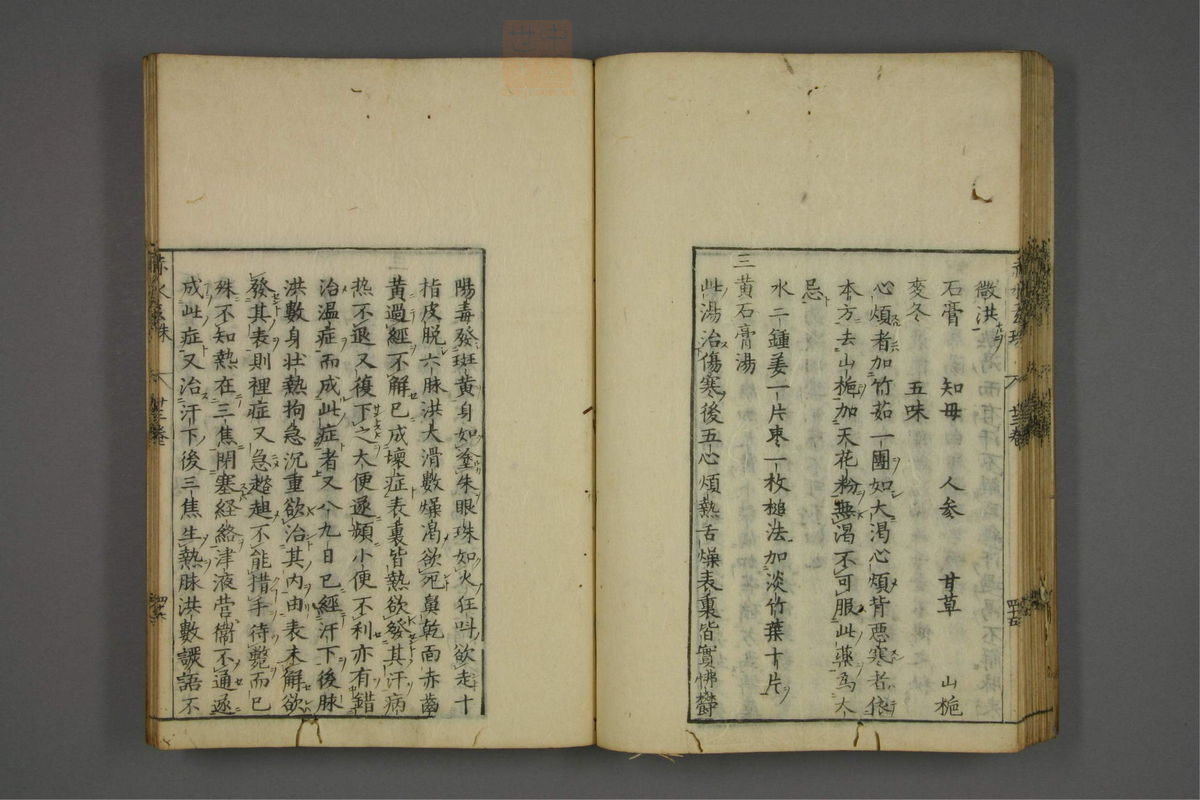 微洪
石膏 知母 人参 甘草 山梔
麥冬 五味
心煩者加竹茹一團如大渇心煩背惡寒者依
本方去山梔加天花粉無渇不可服此薬為大
忌
水二鍾姜一片枣一枚槌法加淡竹葉十片
三黄石膏湯
此湯治傷寒後五心煩熱舌燥表裏皆實怫欝
陽毒發斑黄身如塗朱眼珠如火狂呌欲走十
指皮脱六脉洪大滑數燥渇欲死鼻乾面赤齒
黄過經不解已成壞症表裏皆熱欲發其汗病
热不退又復下之大便遂頻小便不利亦有錯
治温症而成此症者又八九日已經汗下後脉
洪數身壮熱拘急沉重欲治其内由表未解欲
發其表則裡症又急趦趄不能措手待斃而已
殊不知熱在三焦閉塞経絡津液营衛不通遂
成此症又治汗下後三焦生熱脉洪數讝語不